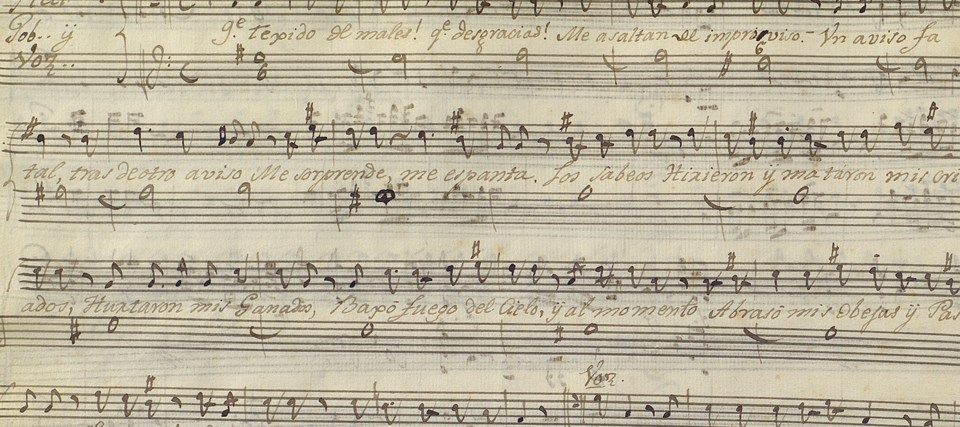 Job.. ÿ
qᵉ. Texido de males! qᵉ desgraciad! Me asaltan de improviso. Vn aviso fa
Voz..
tal, tras de otro aviso Me sorprende, me espanta. Los Sabeos Hixieron ÿ mataron mis cri
ados, Huxtaron mis Ganados, Baxo fuego del Cielo, ÿ al momento Abraso mis Obejas ÿ Pas
Voz.